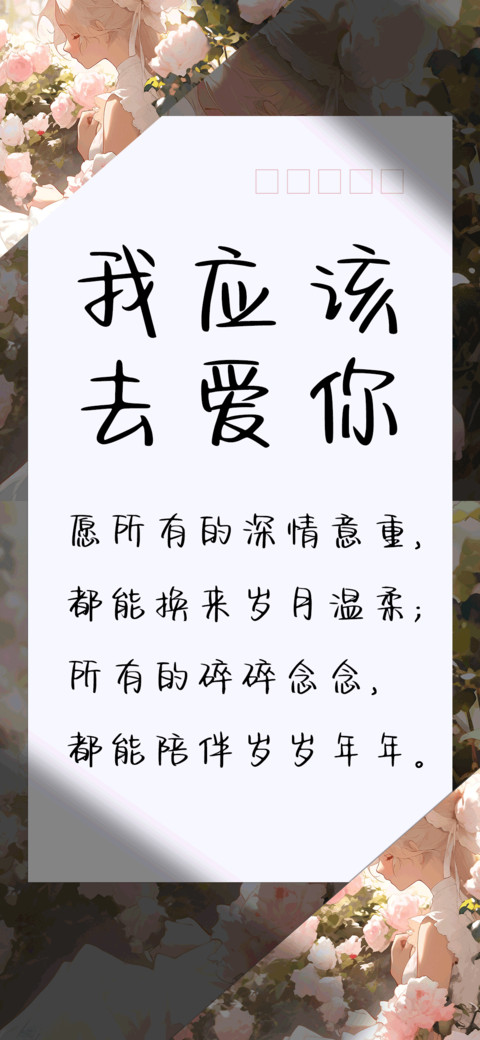 我应该
去爱你
愿所有的深情意重,
都能换来岁月温柔;
所有的碎碎念念,
都能陪伴岁岁年年。